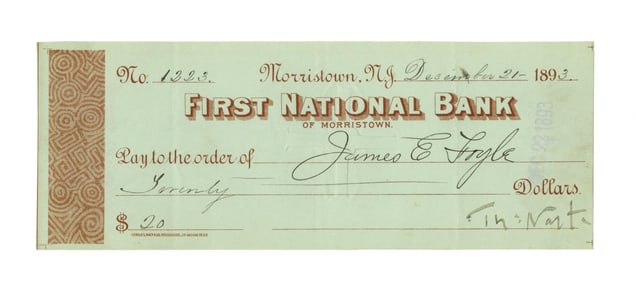 No. 1223. Morristown, N.J. December 21 - 1893.
FIRST NATIONAL BANK
OF MORRISTOWN.
Pay to the order of James E Foyle
Twenty Dollars.
$ 20